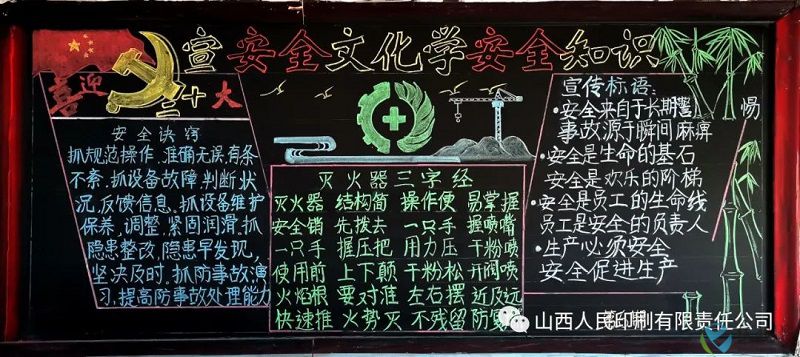 宣安全文化学安全知识
喜迎二十大
安全诀窍
抓规范操作，准确无误，有条
不紊。抓设备故障，判断状
况，反馈信息。抓设备维护
保养，调整，紧固润滑。抓
隐患整改，隐患早发现，
坚决及时。抓防事故演
习，提高防事故处理能力
灭火器三字经
灭火器 结构简 操作便 易掌握
安全销 先拨去 一只手 握喷嘴
一只手 握压把 用力压 干粉喷
使用前 上下颠 干粉松 开阀喷
火焰根 要对准 左右摆 近及远
快速推 火势灭 不残留 防
宣传标语：
·安全来自于长期警惕
事故源于瞬间麻痹
·安全是生命的基石
安全是欢乐的阶梯
·安全是员工的生命线
员工是安全的负责人
·生产必须安全
安全促进生产
山西人民印刷有限责任公司